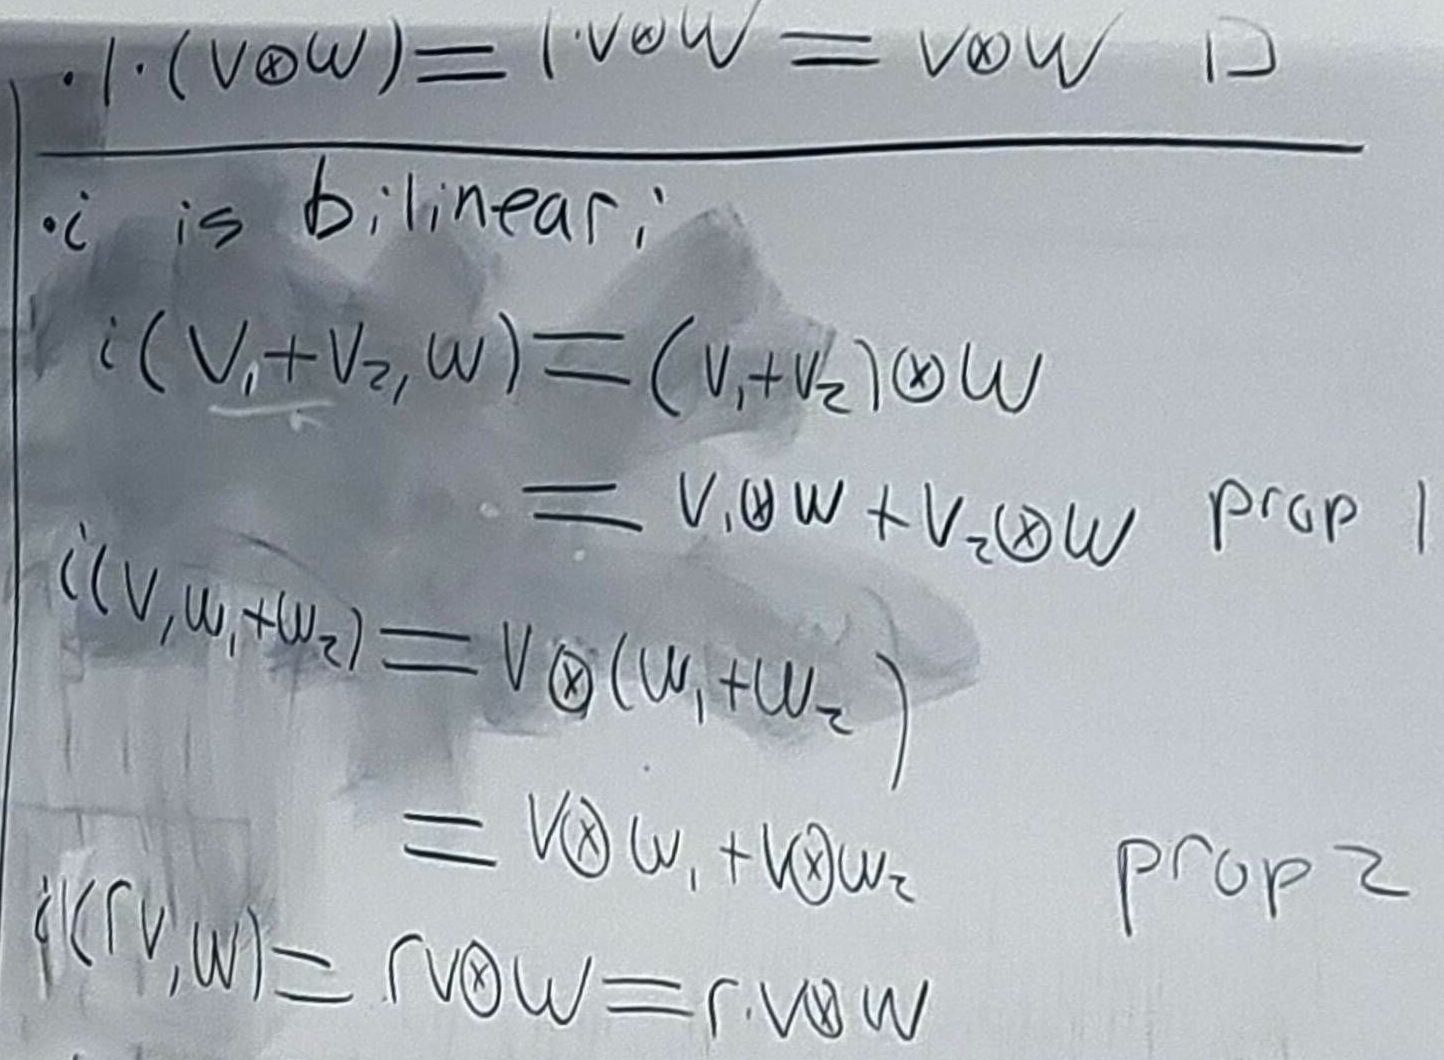 · 1 · (v⊗w) = 1·v⊗w = v⊗w □
· i is bilinear;
i(v₁+v₂, w) = (v₁+v₂)⊗w
= v₁⊗w + v₂⊗w prop 1
i(v, w₁+w₂) = v⊗(w₁+w₂)
= v⊗w₁ + v⊗w₂ prop 2
i(rv, w) = rv⊗w = r·v⊗w